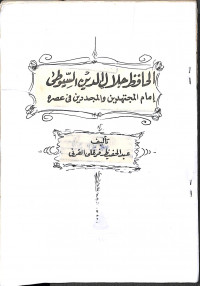 الحافظ جلال الدين السيوطى
إمام المجتهدين والمجددين فى عصره
تأليف
عبد الحفيظ فرغلى القرنى